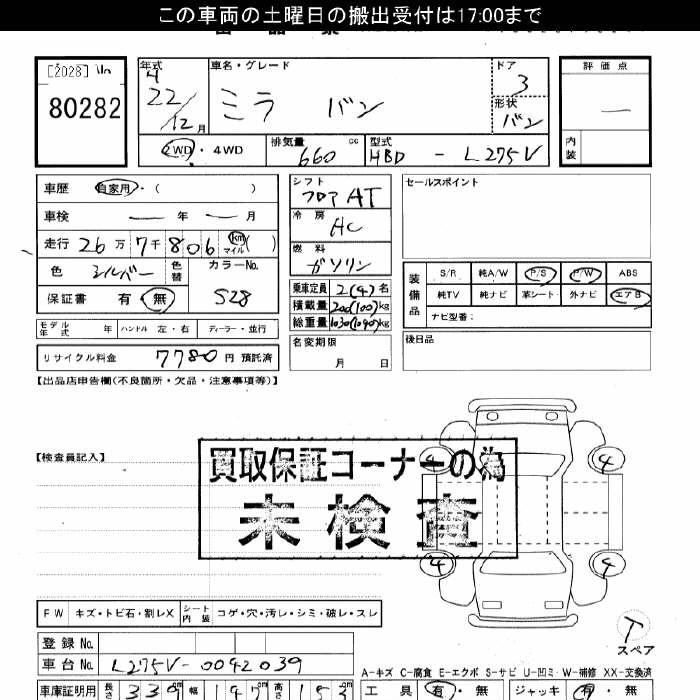 この車両の土曜日の搬出受付は17:00まで
[2028] No
80282
年式
22/12月
車名・グレード
ミラ バン
ドア
3
形状
バン
評価点
—
内装
2WD・4WD
排気量
660 cc
型式
HBD - L275V
車歴 自家用・( )
車検 — 年 — 月
走行 26万7千806 km マイル ( )
色 シルバー 色替
カラーNo.
S28
保証書 有・無
シフト
フロア AT
冷房
AC
燃料
ガソリン
乗車定員 2(4)名
積載量 200(100)kg
総重量 1030(1090)kg
名変期限
月 日
セールスポイント
装備品
S/R 純A/W P/S P/W ABS
純TV 純ナビ 革シート 外ナビ エアB
ナビ型番:
後日品
モデル年式 年 ハンドル 左・右 ディーラー・並行
リサイクル料金 7780 円 預託済
【出品店申告欄(不良箇所・欠品・注意事項等)】
【検査員記入】
買取保証コーナーの為
未検査
4
4
4
4
FW キズ・トビ石・割レX シート内装 コゲ・穴・汚レ・シミ・破レ・スレ
T
スペア
登録No.
車台No. L275V-0042039
A-キズ C-腐食 E-エクボ S-サビ U-凹ミ W-補修 XX-交換済
車庫証明用 長さ 339cm 幅 147cm 高さ 153cm
工具 有・無 ジャッキ 有・無